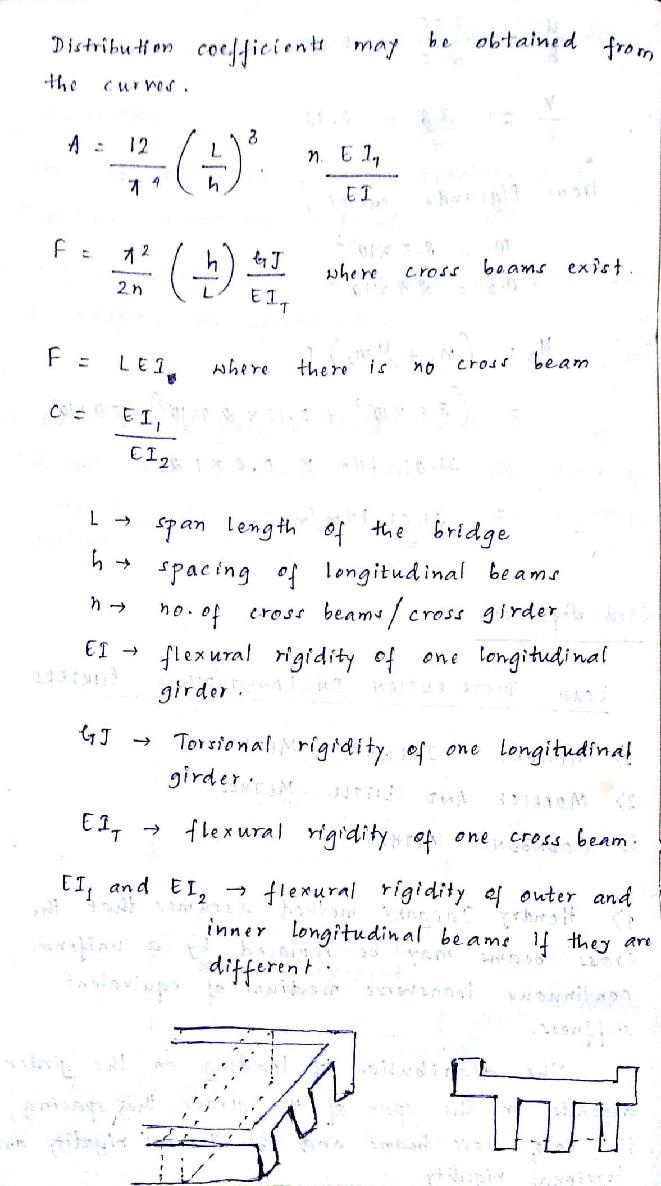 Distribution coefficients may be obtained from
the curves.
A = 12/π⁴ (L/h)³ n. EI_T/EI
F = π²/2n (h/L) GJ/EI_T where cross beams exist.
F = LEI where there is no cross beam
C = EI₁/EI₂
L → span length of the bridge
h → spacing of longitudinal beams
n → no. of cross beams / cross girder
EI → flexural rigidity of one longitudinal
girder.
GJ → Torsional rigidity of one longitudinal
girder.
EI_T → flexural rigidity of one cross beam.
EI₁ and EI₂ → flexural rigidity of outer and
inner longitudinal beams if they are
different.